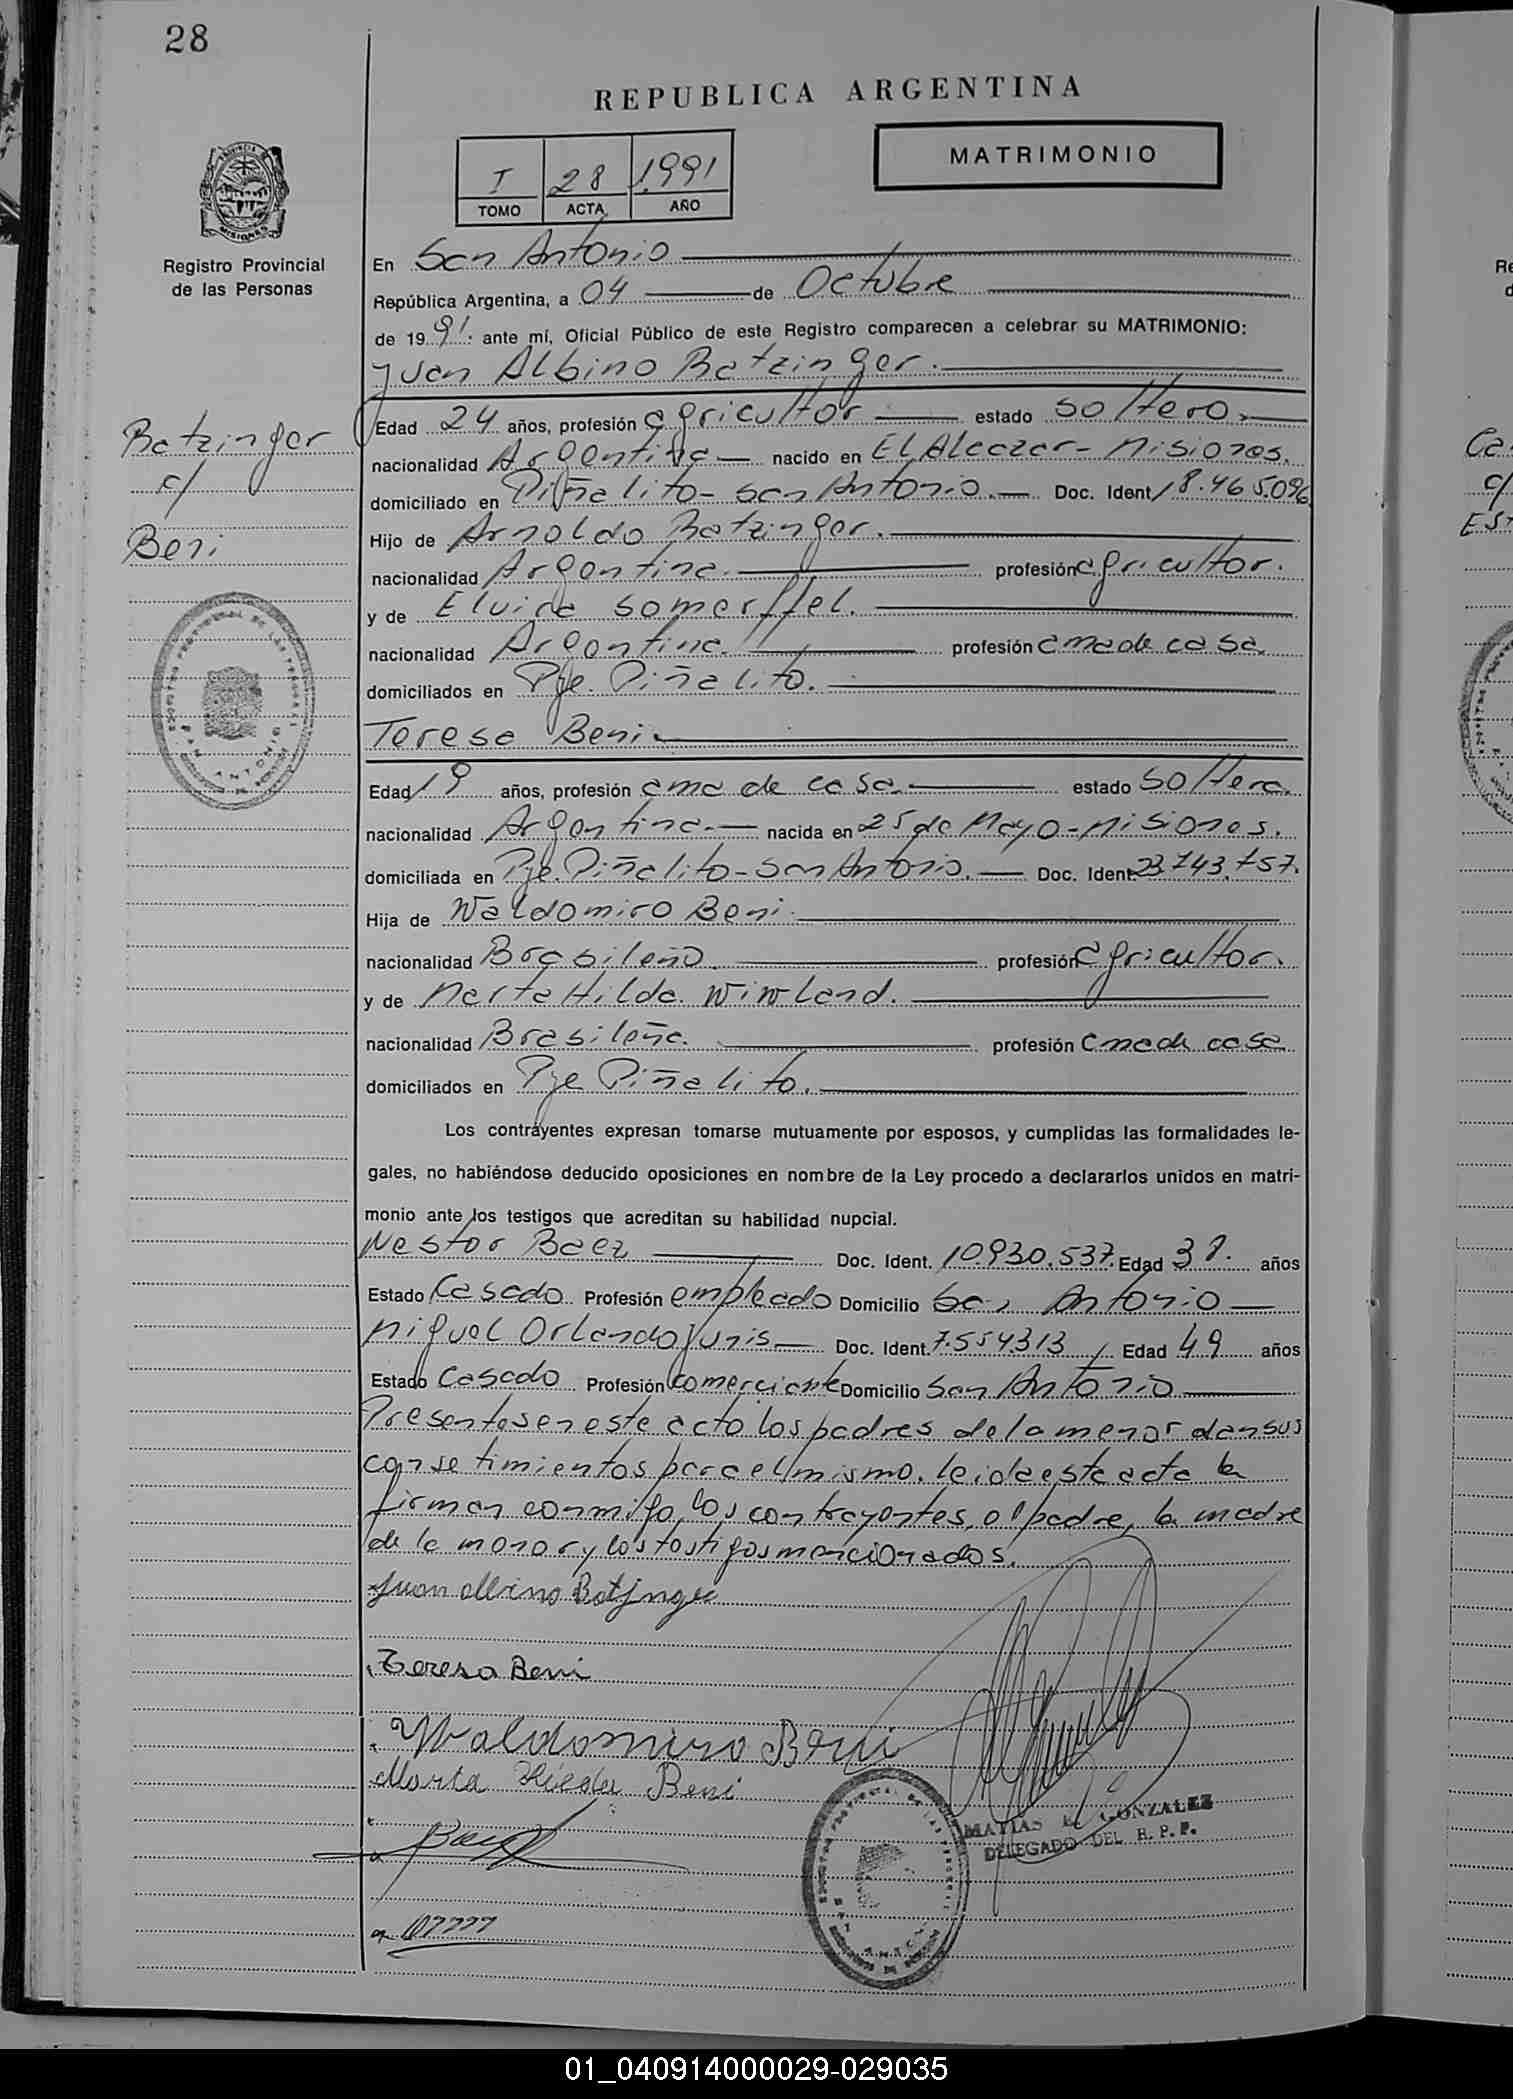 28
REPUBLICA ARGENTINA
MATRIMONIO
I 28 1991
TOMO ACTA AÑO
MISIONES
Registro Provincial
de las Personas
En San Antonio
República Argentina, a 04 de Octubre
de 1991. ante mí, Oficial Público de este Registro comparecen a celebrar su MATRIMONIO:
Juan Albino Batzinger.
Edad 24 años, profesión agricultor estado soltero.
Batzinger
c/
Beni
nacionalidad Argentina nacido en El Alcazar - Misiones.
domiciliado en Piñalito - San Antonio. Doc. Ident 18.465.096
Hijo de Arnoldo Batzinger.
nacionalidad Argentina. profesión agricultor.
y de Elvira Somerffel.
nacionalidad Argentina. profesión ama de casa.
domiciliados en Pje. Piñalito.
Teresa Beni
SAN ANTONIO
Edad 19 años, profesión ama de casa. estado soltera.
nacionalidad Argentina. nacida en 25 de Mayo - Misiones.
domiciliada en Pje. Piñalito - San Antonio. Doc. Ident 23.743.757.
Hija de Waldomiro Beni.
nacionalidad Brasileño. profesión agricultor.
y de Marta Hilda Winwland.
nacionalidad Brasileña. profesión ama de casa
domiciliados en Pje Piñalito.
Los contrayentes expresan tomarse mutuamente por esposos, y cumplidas las formalidades le-
gales, no habiéndose deducido oposiciones en nombre de la Ley procedo a declararlos unidos en matri-
monio ante los testigos que acreditan su habilidad nupcial.
Nestor Baez Doc. Ident. 10.930.537. Edad 38. años
Estado Casado Profesión empleado Domicilio San Antonio
Miguel Orlando Junis Doc. Ident. 7.554.313 Edad 49 años
Estado Casado Profesión comerciante Domicilio San Antonio
Presentes en este acto los padres de la menor dan sus
consetimientos para el mismo. leida esta acta la
firman conmigo, los contrayentes, el padre, la madre
de la menor y los testigos mencionados.
Juan Albino Batzinger
Teresa Beni
Waldomiro Beni
Marta Hilda Beni
MATIAS E. GONZALEZ
DELEGADO DEL R. P. P.
01_040914000029-029035